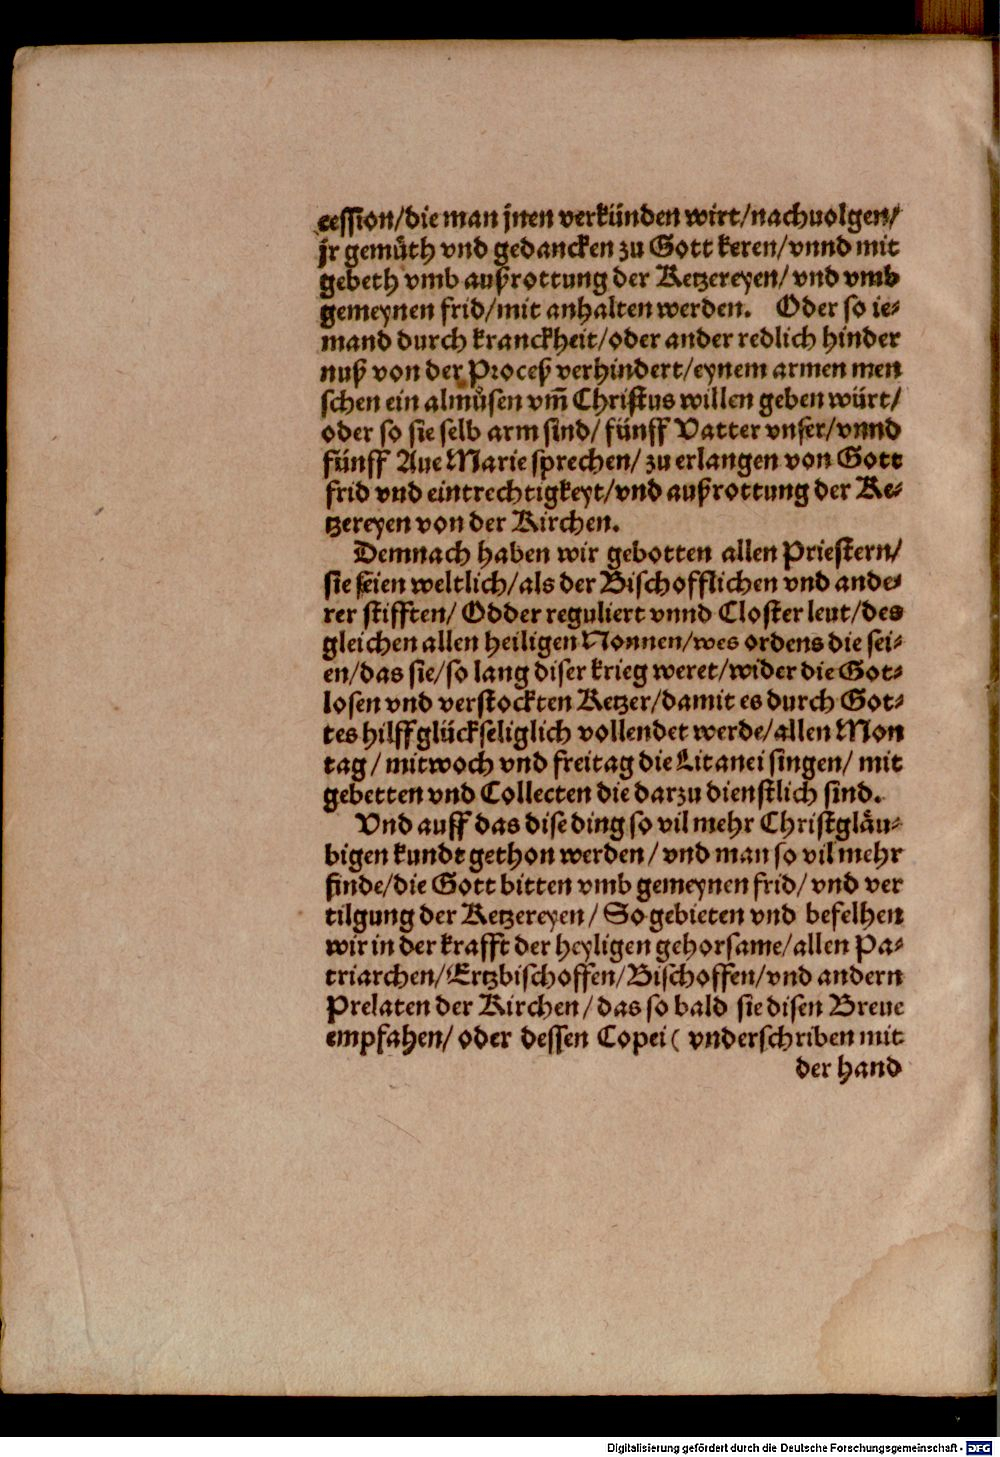 cession/die man jnen verkünden wirt/nachuolgen/
jr gemuͤth vnd gedancken zu Gott keren/vnnd mit
gebeth vmb außrottung der Ketzereyen/ vnd vmb
gemeynen frid/mit anhalten werden. Oder so ie⸗
mand durch kranckheit/oder ander redlich hinder
nuß von der Proceß verhindert/eynem armen men
schen ein almuͦsen vm̃ Christus willen geben würt/
oder so sie selb arm sind/ fünff Vatter vnser/vnnd
fünff Aue Marie sprechen/ zu erlangen von Gott
frid vnd eintrechtigkeyt/vnd außrottung der Ke⸗
tzereyen von der Kirchen.
Demnach haben wir gebotten allen Priestern/
sie seien weltlich/als der Bischofflichen vnd ande⸗
rer stifften/ Odder reguliert vnnd Closter leut/des
gleichen allen heiligen Nonnen/wes ordens die sei⸗
en/das sie/so lang diser krieg weret/wider die Got⸗
losen vnd verstockten Ketzer/damit es durch Got⸗
tes hilff glückseliglich vollendet werde/allen Mon
tag/ mitwoch vnd freitag die Litanei singen/ mit
gebetten vnd Collecten die darzu dienstlich sind.
Vnd auff das dise ding so vil mehr Christglaͤu⸗
bigen kundt gethon werden/ vnd man so vil mehr
finde/die Gott bitten vmb gemeynen frid/ vnd ver
tilgung der Ketzereyen/ So gebieten vnd befelhen
wir in der krafft der heyligen gehorsame/allen Pa⸗
triarchen/Ertzbischoffen/Bischoffen/vnd andern
Prelaten der Kirchen/ das so bald sie disen Breue
empfahen/ oder dessen Copei( vnderschriben mit
der hand
Digitalisierung gefördert durch die Deutsche Forschungsgemeinschaft - DFG